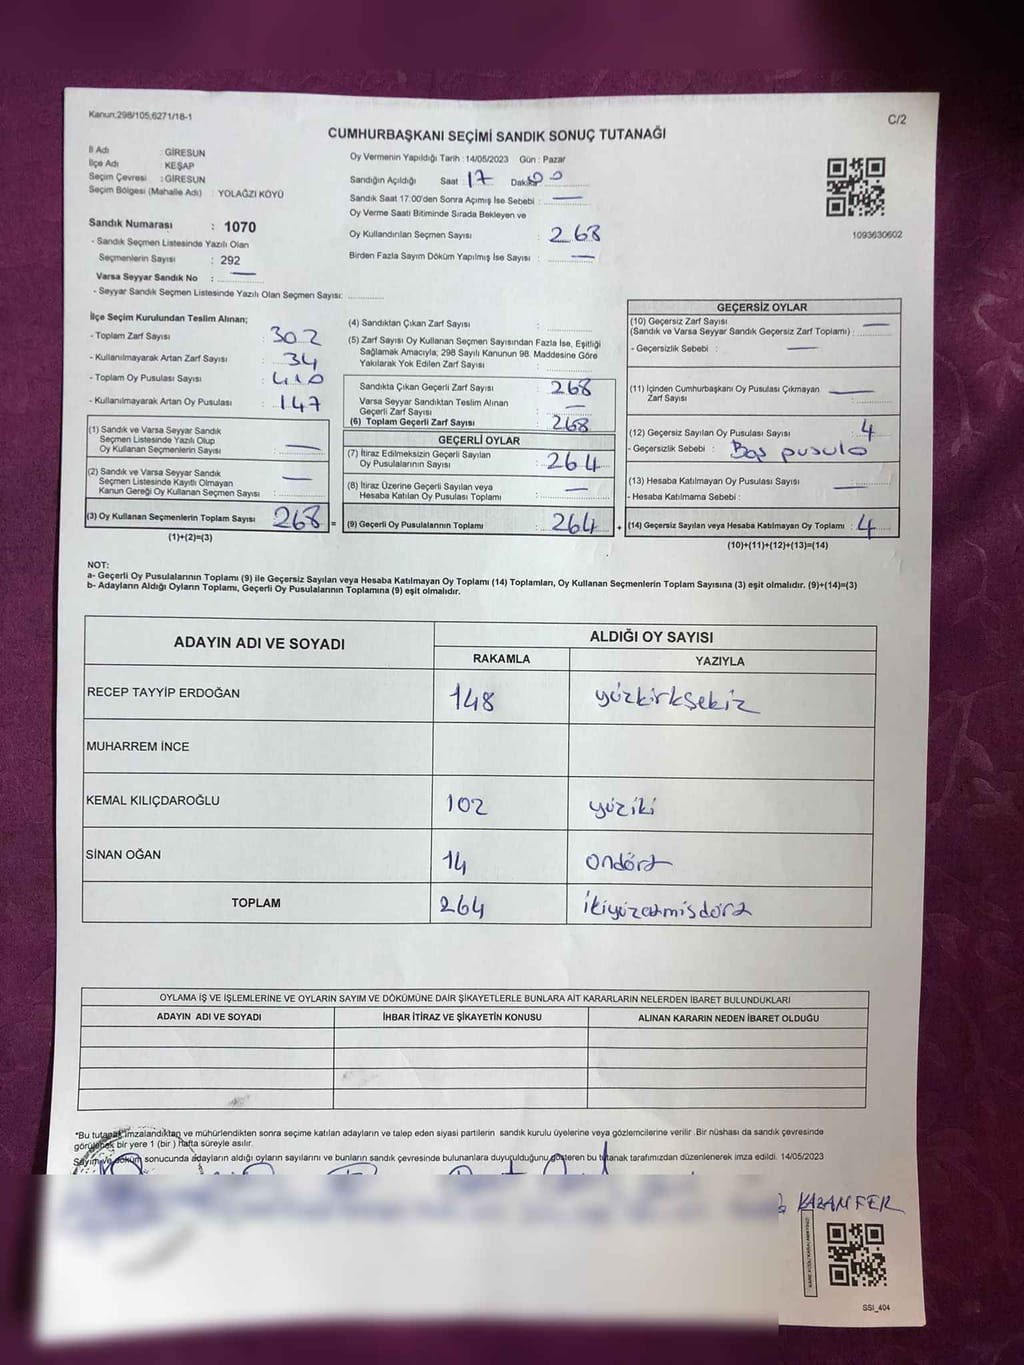 Kanun;298/105,6271/18-1
C/2
CUMHURBAŞKANI SEÇİMİ SANDIK SONUÇ TUTANAĞI
İl Adı : GİRESUN
İlçe Adı : KEŞAP
Seçim Çevresi : GİRESUN
Seçim Bölgesi (Mahalle Adı) : YOLAĞZI KÖYÜ
Oy Vermenin Yapıldığı Tarih : 14/05/2023 Gün : Pazar
Sandığın Açıldığı Saat 17 Dakika 00
Sandık Saat 17.00'den Sonra Açımış İse Sebebi : —
Oy Verme Saati Bitiminde Sırada Bekleyen ve
Oy Kullandırılan Seçmen Sayısı : 268
Birden Fazla Sayım Döküm Yapılmış İse Sayısı : —
1093630602
Sandık Numarası : 1070
- Sandık Seçmen Listesinde Yazılı Olan
Seçmenlerin Sayısı : 292
Varsa Seyyar Sandık No : —
- Seyyar Sandık Seçmen Listesinde Yazılı Olan Seçmen Sayısı:
İlçe Seçim Kurulundan Teslim Alınan;
- Toplam Zarf Sayısı : 302
- Kullanılmayarak Artan Zarf Sayısı : 34
- Toplam Oy Pusulası Sayısı : 410
- Kullanılmayarak Artan Oy Pusulası : 147
(1) Sandık ve Varsa Seyyar Sandık
Seçmen Listesinde Yazılı Olup
Oy Kullanan Seçmenlerin Sayısı : —
(2) Sandık ve Varsa Seyyar Sandık
Seçmen Listesinde Kayıtlı Olmayan
Kanun Gereği Oy Kullanan Seçmen Sayısı : —
(3) Oy Kullanan Seçmenlerin Toplam Sayısı 268 =
(1)+(2)=(3)
(4) Sandıktan Çıkan Zarf Sayısı :
(5) Zarf Sayısı Oy Kullanan Seçmen Sayısından Fazla İse, Eşitliği
Sağlamak Amacıyla; 298 Sayılı Kanunun 98. Maddesine Göre
Yakılarak Yok Edilen Zarf Sayısı :
Sandıkta Çıkan Geçerli Zarf Sayısı : 268
Varsa Seyyar Sandıktan Teslim Alınan
Geçerli Zarf Sayısı : —
(6) Toplam Geçerli Zarf Sayısı : 268
GEÇERLİ OYLAR
(7) İtiraz Edilmeksizin Geçerli Sayılan
Oy Pusulalarının Sayısı : 264
(8) İtiraz Üzerine Geçerli Sayılan veya
Hesaba Katılan Oy Pusulası Toplamı : —
(9) Geçerli Oy Pusulalarının Toplamı : 264 +
GEÇERSİZ OYLAR
(10) Geçersiz Zarf Sayısı —
(Sandık ve Varsa Seyyar Sandık Geçersiz Zarf Toplamı) :
- Geçersizlik Sebebi : —
(11) İçinden Cumhurbaşkanı Oy Pusulası Çıkmayan —
Zarf Sayısı :
(12) Geçersiz Sayılan Oy Pusulası Sayısı : 4
- Geçersizlik Sebebi : Boş pusula
(13) Hesaba Katılmayan Oy Pusulası Sayısı : —
- Hesaba Katılmama Sebebi :
(14) Geçersiz Sayılan veya Hesaba Katılmayan Oy Toplamı : 4
(10)+(11)+(12)+(13)=(14)
NOT:
a- Geçerli Oy Pusulalarının Toplamı (9) ile Geçersiz Sayılan veya Hesaba Katılmayan Oy Toplamı (14) Toplamları, Oy Kullanan Seçmenlerin Toplam Sayısına (3) eşit olmalıdır. (9)+(14)=(3)
b- Adayların Aldığı Oyların Toplamı, Geçerli Oy Pusulalarının Toplamına (9) eşit olmalıdır.
ADAYIN ADI VE SOYADI
ALDIĞI OY SAYISI
RAKAMLA YAZIYLA
RECEP TAYYİP ERDOĞAN 148 yüzkirksekiz
MUHARREM İNCE
KEMAL KILIÇDAROĞLU 102 yüziki
SİNAN OĞAN 14 ondört
TOPLAM 264 ikiyüzatmisdört
OYLAMA İŞ VE İŞLEMLERİNE VE OYLARIN SAYIM VE DÖKÜMÜNE DAİR ŞİKAYETLERLE BUNLARA AİT KARARLARIN NELERDEN İBARET BULUNDUKLARI
ADAYIN ADI VE SOYADI İHBAR İTİRAZ VE ŞİKAYETİN KONUSU ALINAN KARARIN NEDEN İBARET OLDUĞU
*Bu tutanak imzalandıktan ve mühürlendikten sonra seçime katılan adayların ve talep eden siyasi partilerin sandık kurulu üyelerine veya gözlemcilerine verilir .Bir nüshası da sandık çevresinde
görülecek bir yere 1 (bir ) hafta süreyle asılır.
Sayım ve döküm sonucunda adayların aldığı oyların sayılarını ve bunların sandık çevresinde bulunanlara duyurulduğunu gösteren bu tutanak tarafımızdan düzenlenerek imza edildi. 14/05/2023
KAZANFER
SSI_404